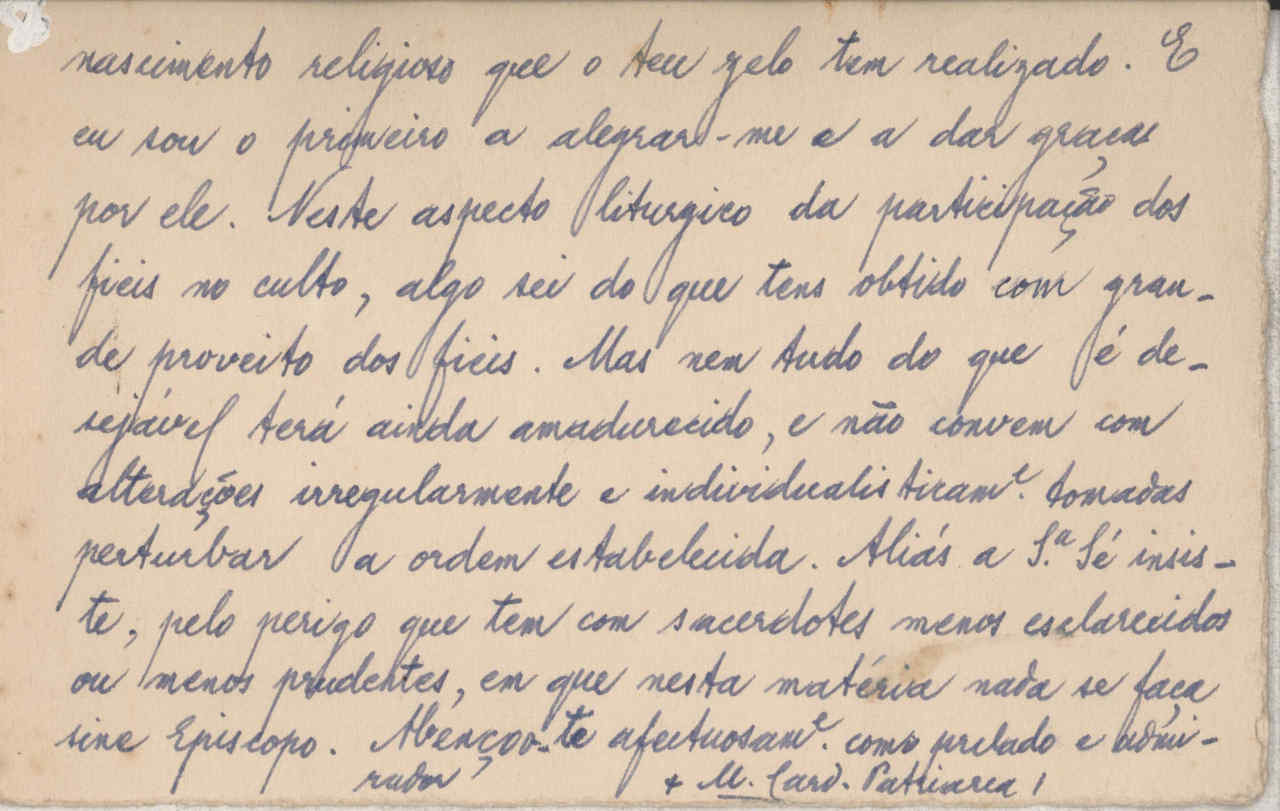 nascimento religioso que o teu zelo tem realizado. E
eu sou o primeiro a alegrar-me e a dar graças
por ele. Neste aspecto liturgico da participação dos
fieis no culto, algo sei do que tens obtido com gran-
de proveito dos fieis. Mas nem tudo do que é de-
sejável terá ainda amadurecido, e não convem com
alterações irregularmente e individualisticamᵉ. tomadas
perturbar a ordem estabelecida. Aliás a S.ª Sé insis-
te, pelo perigo que tem com sacerdotes menos esclarecidos
ou menos prudentes, em que nesta matéria nada se faça
sine Episcopo. Abençoo-te afectuosamᵉ. como prelado e admi-
rador
+ M. Card. Patriarca